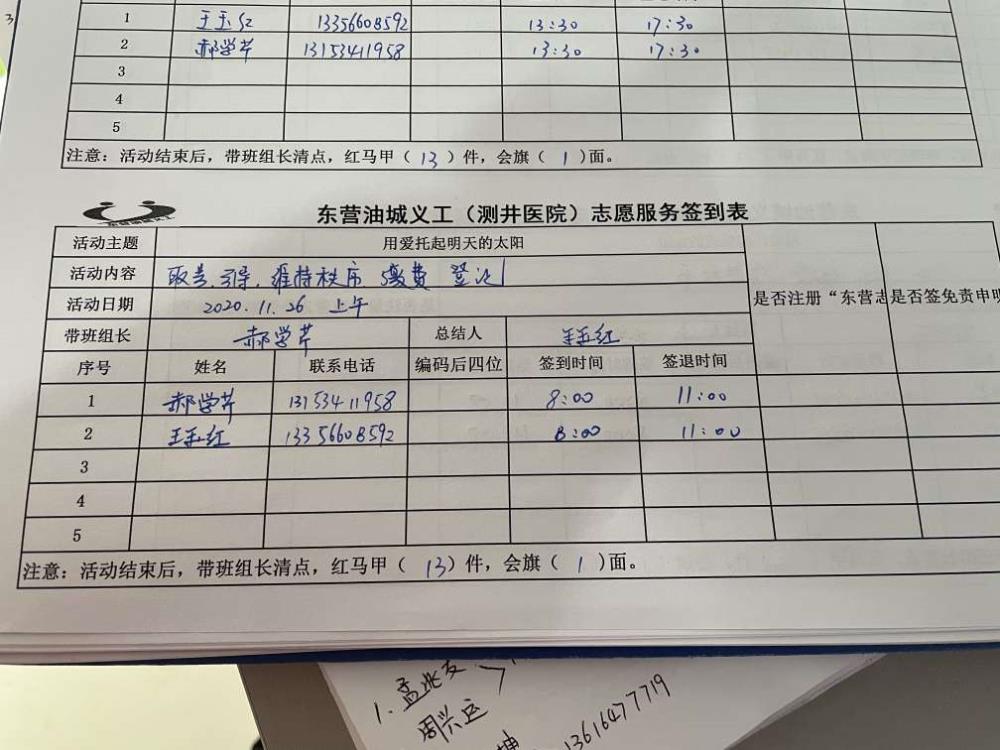 3
1 王玉红 13356608592 13:30 17:30
2 郝学芹 13153411958 13:30 17:30
3
4
5
注意：活动结束后，带班组长清点，红马甲（13）件，会旗（1）面。
东营油城义工（测井医院）志愿服务签到表
活动主题 用爱托起明天的太阳
活动内容 取号.引导.维持秩序 缴费 登记
活动日期 2020.11.26 上午
是否注册“东营志 是否签免责申明
带班组长 郝学芹 总结人 王玉红
序号 姓名 联系电话 编码后四位 签到时间 签退时间
1 郝学芹 13153411958 8:00 11:00
2 王玉红 13356608592 8:00 11:00
3
4
5
注意：活动结束后，带班组长清点，红马甲（13）件，会旗（1）面。
1.孟兆友
周兴运
13616477719